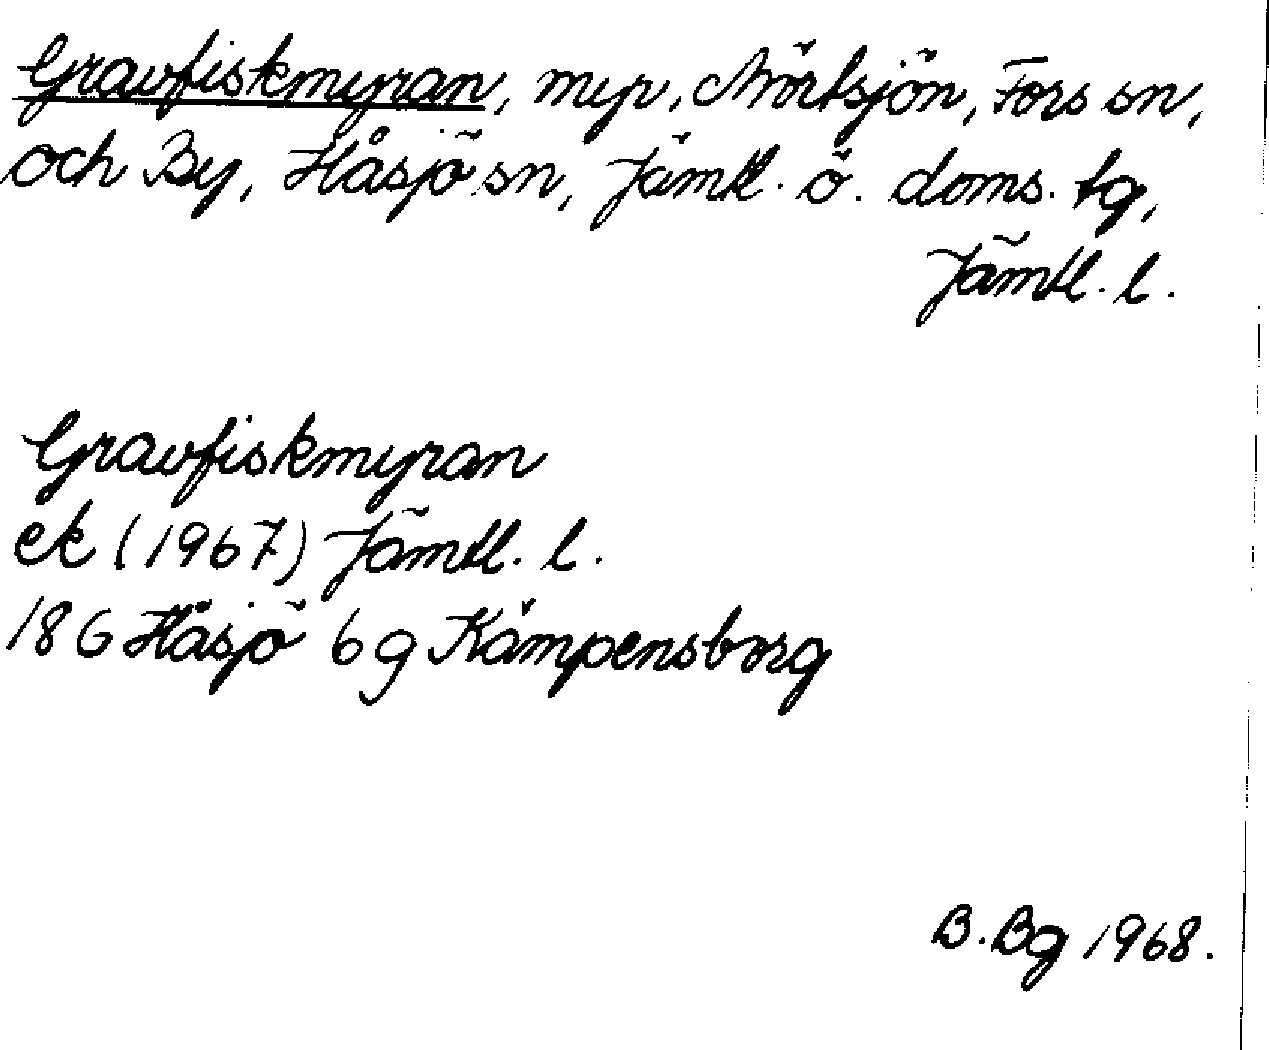 Gravfiskmyran, myr, Mörtsjön, Fors sn,
och By, Håsjö sn, Jämtl. ö. doms. tg,
Jämtl. l.
Gravfiskmyran
ek (1967) Jämtl. l.
18 G Håsjö 6 g Kämpensborg
B. Bg 1968.